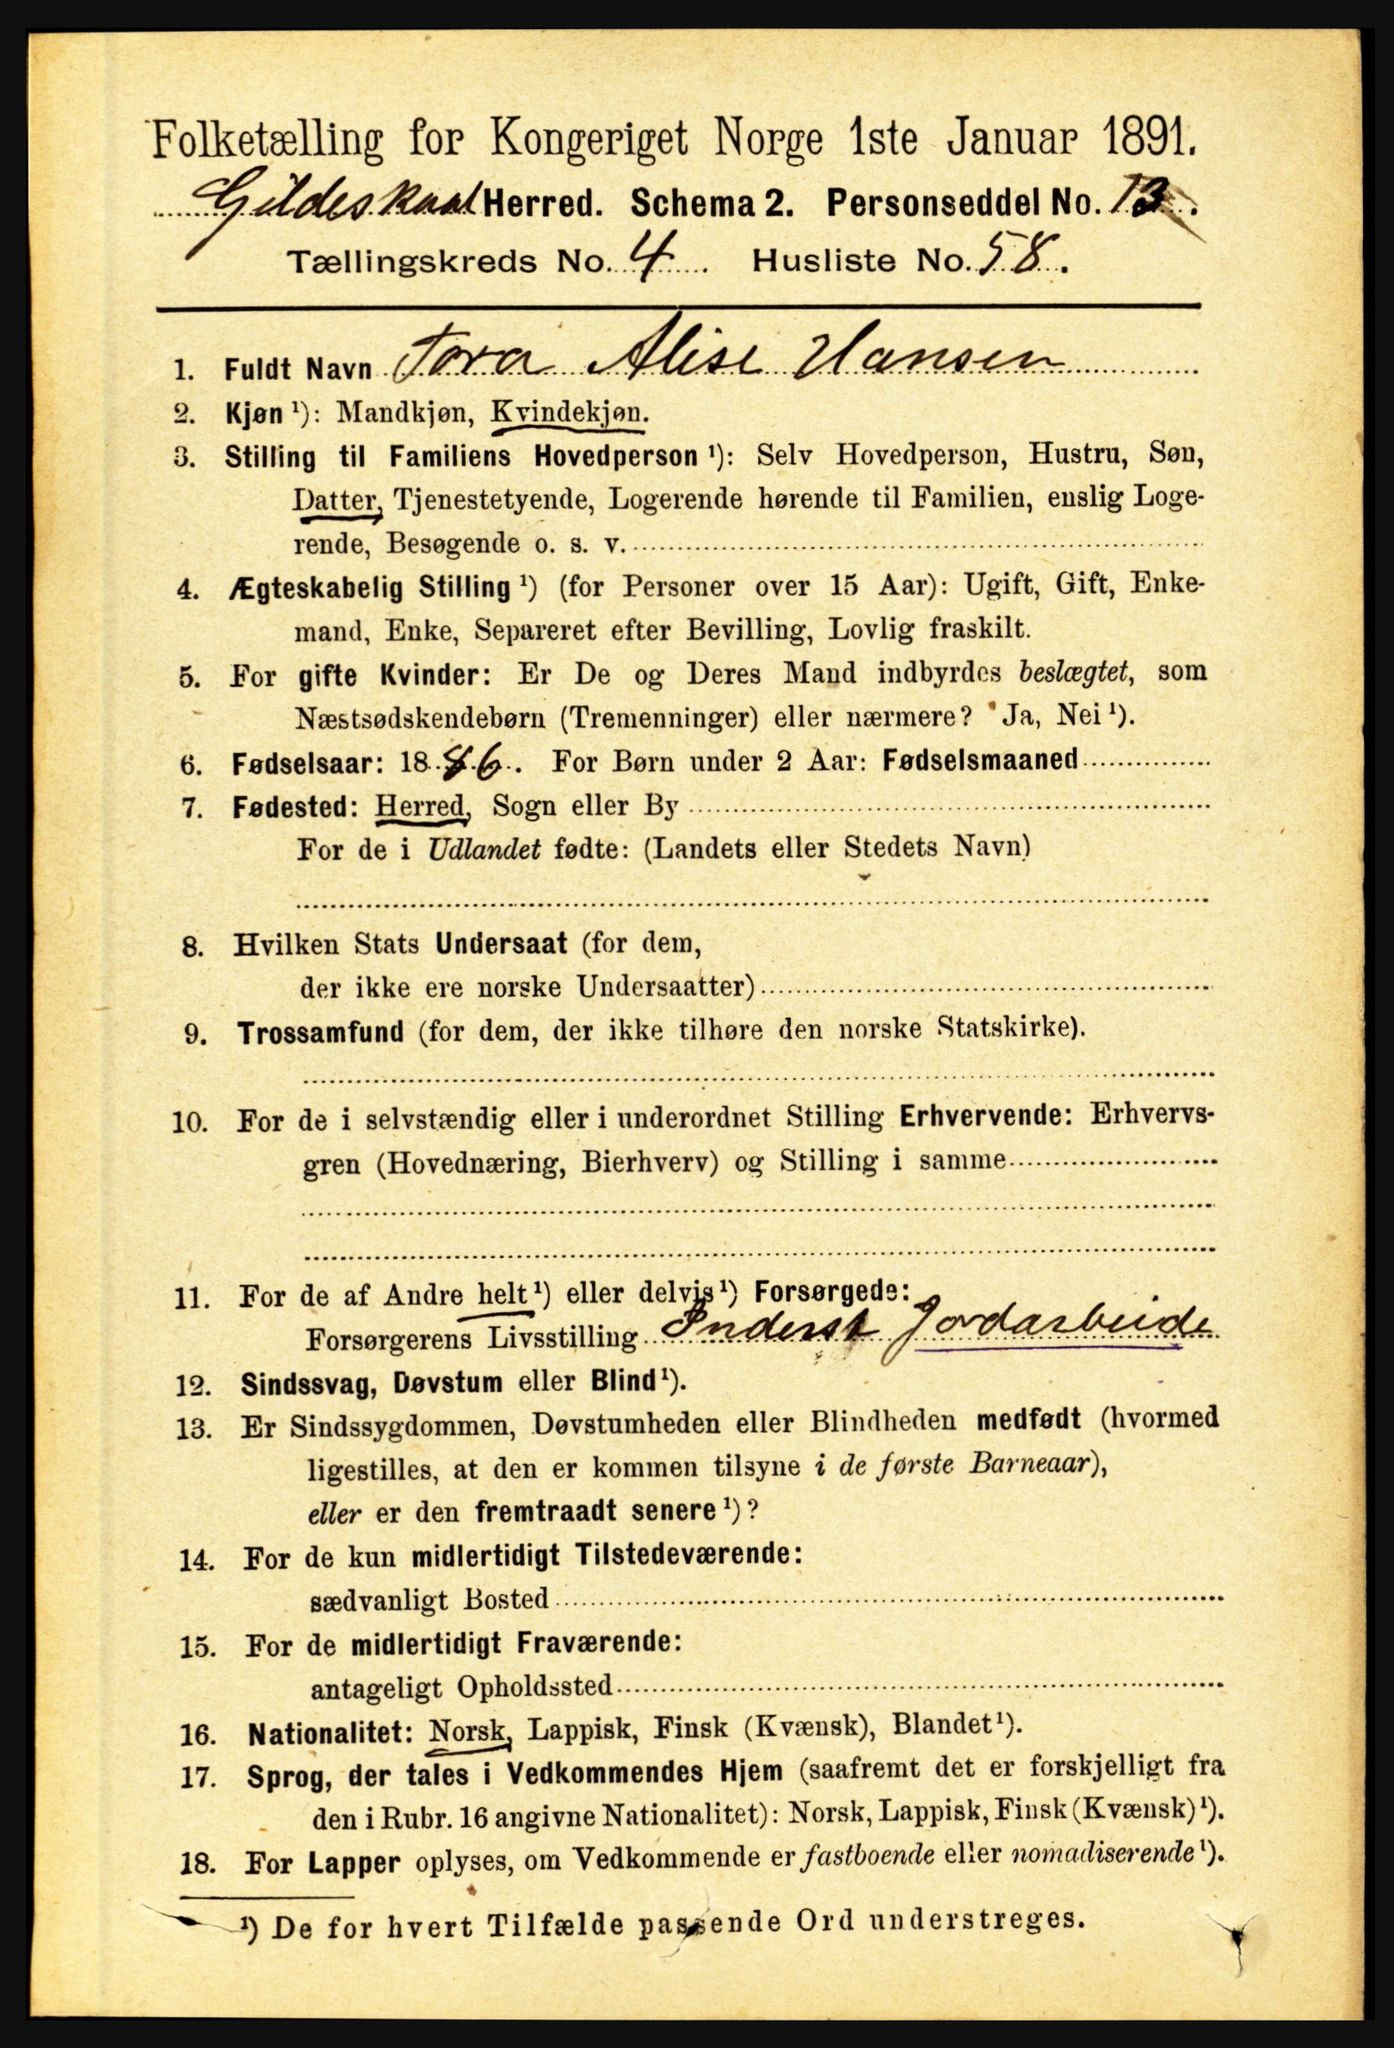 Folketælling for Kongeriget Norge 1ste Januar 1891.
Gildeskaal Herred. Schema 2. Personseddel No. 13.
Tællingskreds No. 4. Husliste No. 58.
1. Fuldt Navn Tora Alise Hansen
2. Kjøn ¹): Mandkjøn, Kvindekjøn.
3. Stilling til Familiens Hovedperson ¹): Selv Hovedperson, Hustru, Søn,
Datter, Tjenestetyende, Logerende hørende til Familien, enslig Loge-
rende, Besøgende o. s. v.
4. Ægteskabelig Stilling ¹) (for Personer over 15 Aar): Ugift, Gift, Enke-
mand, Enke, Separeret efter Bevilling, Lovlig fraskilt.
5. For gifte Kvinder: Er De og Deres Mand indbyrdes beslægtet, som
Næstsødskendebørn (Tremenninger) eller nærmere? Ja, Nei ¹).
6. Fødselsaar: 1886. For Børn under 2 Aar: Fødselsmaaned
7. Fødested: Herred, Sogn eller By
For de i Udlandet fødte: (Landets eller Stedets Navn)
8. Hvilken Stats Undersaat (for dem,
der ikke ere norske Undersaatter)
9. Trossamfund (for dem, der ikke tilhøre den norske Statskirke).
10. For de i selvstændig eller i underordnet Stilling Erhvervende: Erhvervs-
gren (Hovednæring, Bierhverv) og Stilling i samme
11. For de af Andre helt ¹) eller delvis ¹) Forsørgede:
Forsørgerens Livsstilling Inderst Jordarbeide
12. Sindssvag, Døvstum eller Blind ¹).
13. Er Sindssygdommen, Døvstumheden eller Blindheden medfødt (hvormed
ligestilles, at den er kommen tilsyne i de første Barneaar),
eller er den fremtraadt senere ¹)?
14. For de kun midlertidigt Tilstedeværende:
sædvanligt Bosted
15. For de midlertidigt Fraværende:
antageligt Opholdssted
16. Nationalitet: Norsk, Lappisk, Finsk (Kvænsk), Blandet ¹).
17. Sprog, der tales i Vedkommendes Hjem (saafremt det er forskjelligt fra
den i Rubr. 16 angivne Nationalitet): Norsk, Lappisk, Finsk (Kvænsk) ¹).
18. For Lapper oplyses, om Vedkommende er fastboende eller nomadiserende ¹).
¹) De for hvert Tilfælde passende Ord understreges.